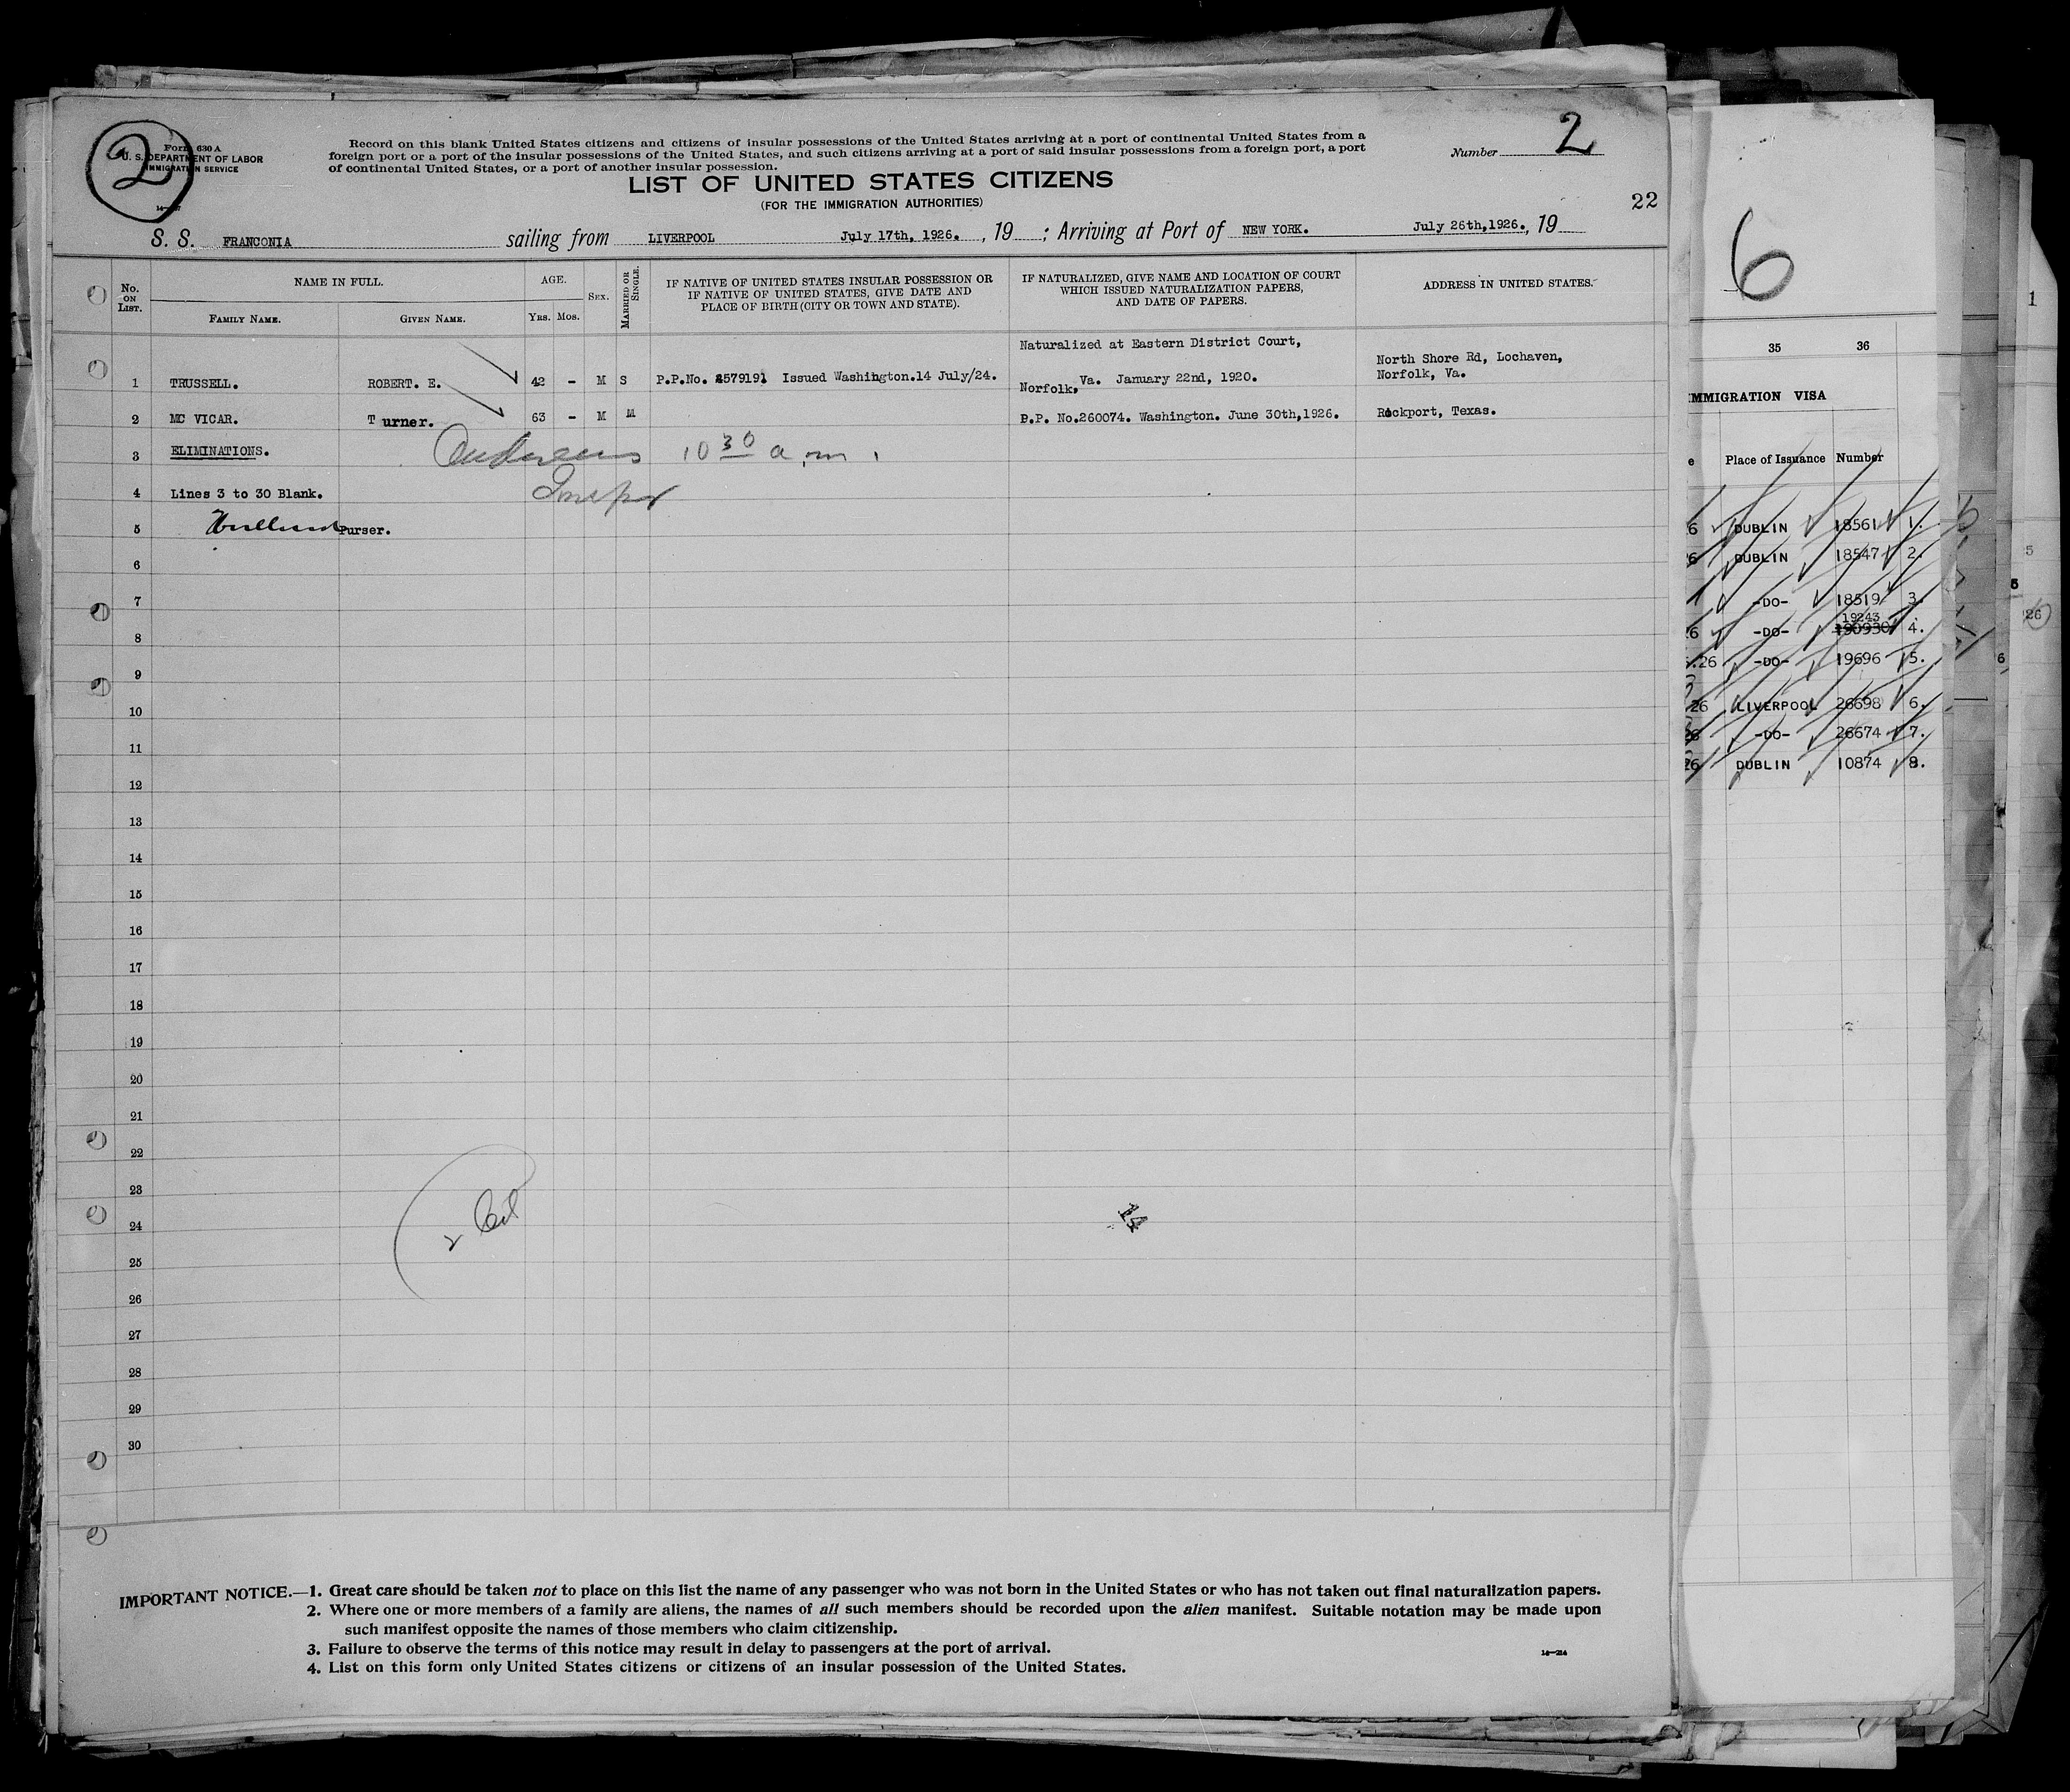 2
Form 630 A
U. S. DEPARTMENT OF LABOR
IMMIGRATION SERVICE
Record on this blank United States citizens and citizens of insular possessions of the United States arriving at a port of continental United States from a
foreign port or a port of the insular possessions of the United States, and such citizens arriving at a port of said insular possessions from a foreign port, a port
of continental United States, or a port of another insular possession.
Number 2
LIST OF UNITED STATES CITIZENS
(FOR THE IMMIGRATION AUTHORITIES)
22
S. S. FRANCONIA sailing from LIVERPOOL July 17th, 1926. , 19 ; Arriving at Port of NEW YORK. July 26th,1926., 19
No. ON LIST.
NAME IN FULL.
FAMILY NAME. GIVEN NAME.
AGE.
YRS. MOS.
SEX.
MARRIED OR SINGLE.
IF NATIVE OF UNITED STATES INSULAR POSSESSION OR
IF NATIVE OF UNITED STATES, GIVE DATE AND
PLACE OF BIRTH (CITY OR TOWN AND STATE).
IF NATURALIZED, GIVE NAME AND LOCATION OF COURT
WHICH ISSUED NATURALIZATION PAPERS,
AND DATE OF PAPERS.
ADDRESS IN UNITED STATES.
Naturalized at Eastern District Court,
North Shore Rd, Lochaven,
1 TRUSSELL. ROBERT. E. 42 - M S P.P.No. 579191 Issued Washington.14 July/24. Norfolk, Va. January 22nd, 1920. Norfolk, Va.
2 MC VICAR. Turner. 63 - M M P.P. No.260074. Washington. June 30th,1926. Rockport, Texas.
3 ELIMINATIONS. 10 30 a.m.
4 Lines 3 to 30 Blank. Inspr
5 Purser.
6
7
8
9
10
11
12
13
14
15
16
17
18
19
20
21
22
23
24 2 Cit 14
25
26
27
28
29
30
IMPORTANT NOTICE.—1. Great care should be taken not to place on this list the name of any passenger who was not born in the United States or who has not taken out final naturalization papers.
2. Where one or more members of a family are aliens, the names of all such members should be recorded upon the alien manifest. Suitable notation may be made upon
such manifest opposite the names of those members who claim citizenship.
3. Failure to observe the terms of this notice may result in delay to passengers at the port of arrival.
4. List on this form only United States citizens or citizens of an insular possession of the United States.
14—214
6
35 36
IMMIGRATION VISA
Place of Issuance Number
6 DUBLIN 18561 1.
6 DUBLIN 18547 2.
-DO- 18519 3.
19243
6 -DO- 190930 4.
.26 -DO- 19696 5.
26 LIVERPOOL 26698 6.
26 -DO- 26674 7.
26 DUBLIN 10874 8.
1
5
5
26
6